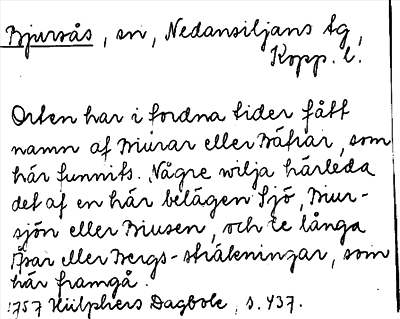 Bjursås, sn, Nedansiljans tg,
Kopp. l.
Orten har i fordna tider fått
namn af Biurar eller Bäfrar, som
här funnits. Någre wilja härleda
det af en här belägen Sjö, Biur-
sjön eller Biusen, och te långa
Åsar eller Bergs-sträkningar, som
här framgå.
1757 Hülphers Dagbok, s. 437.